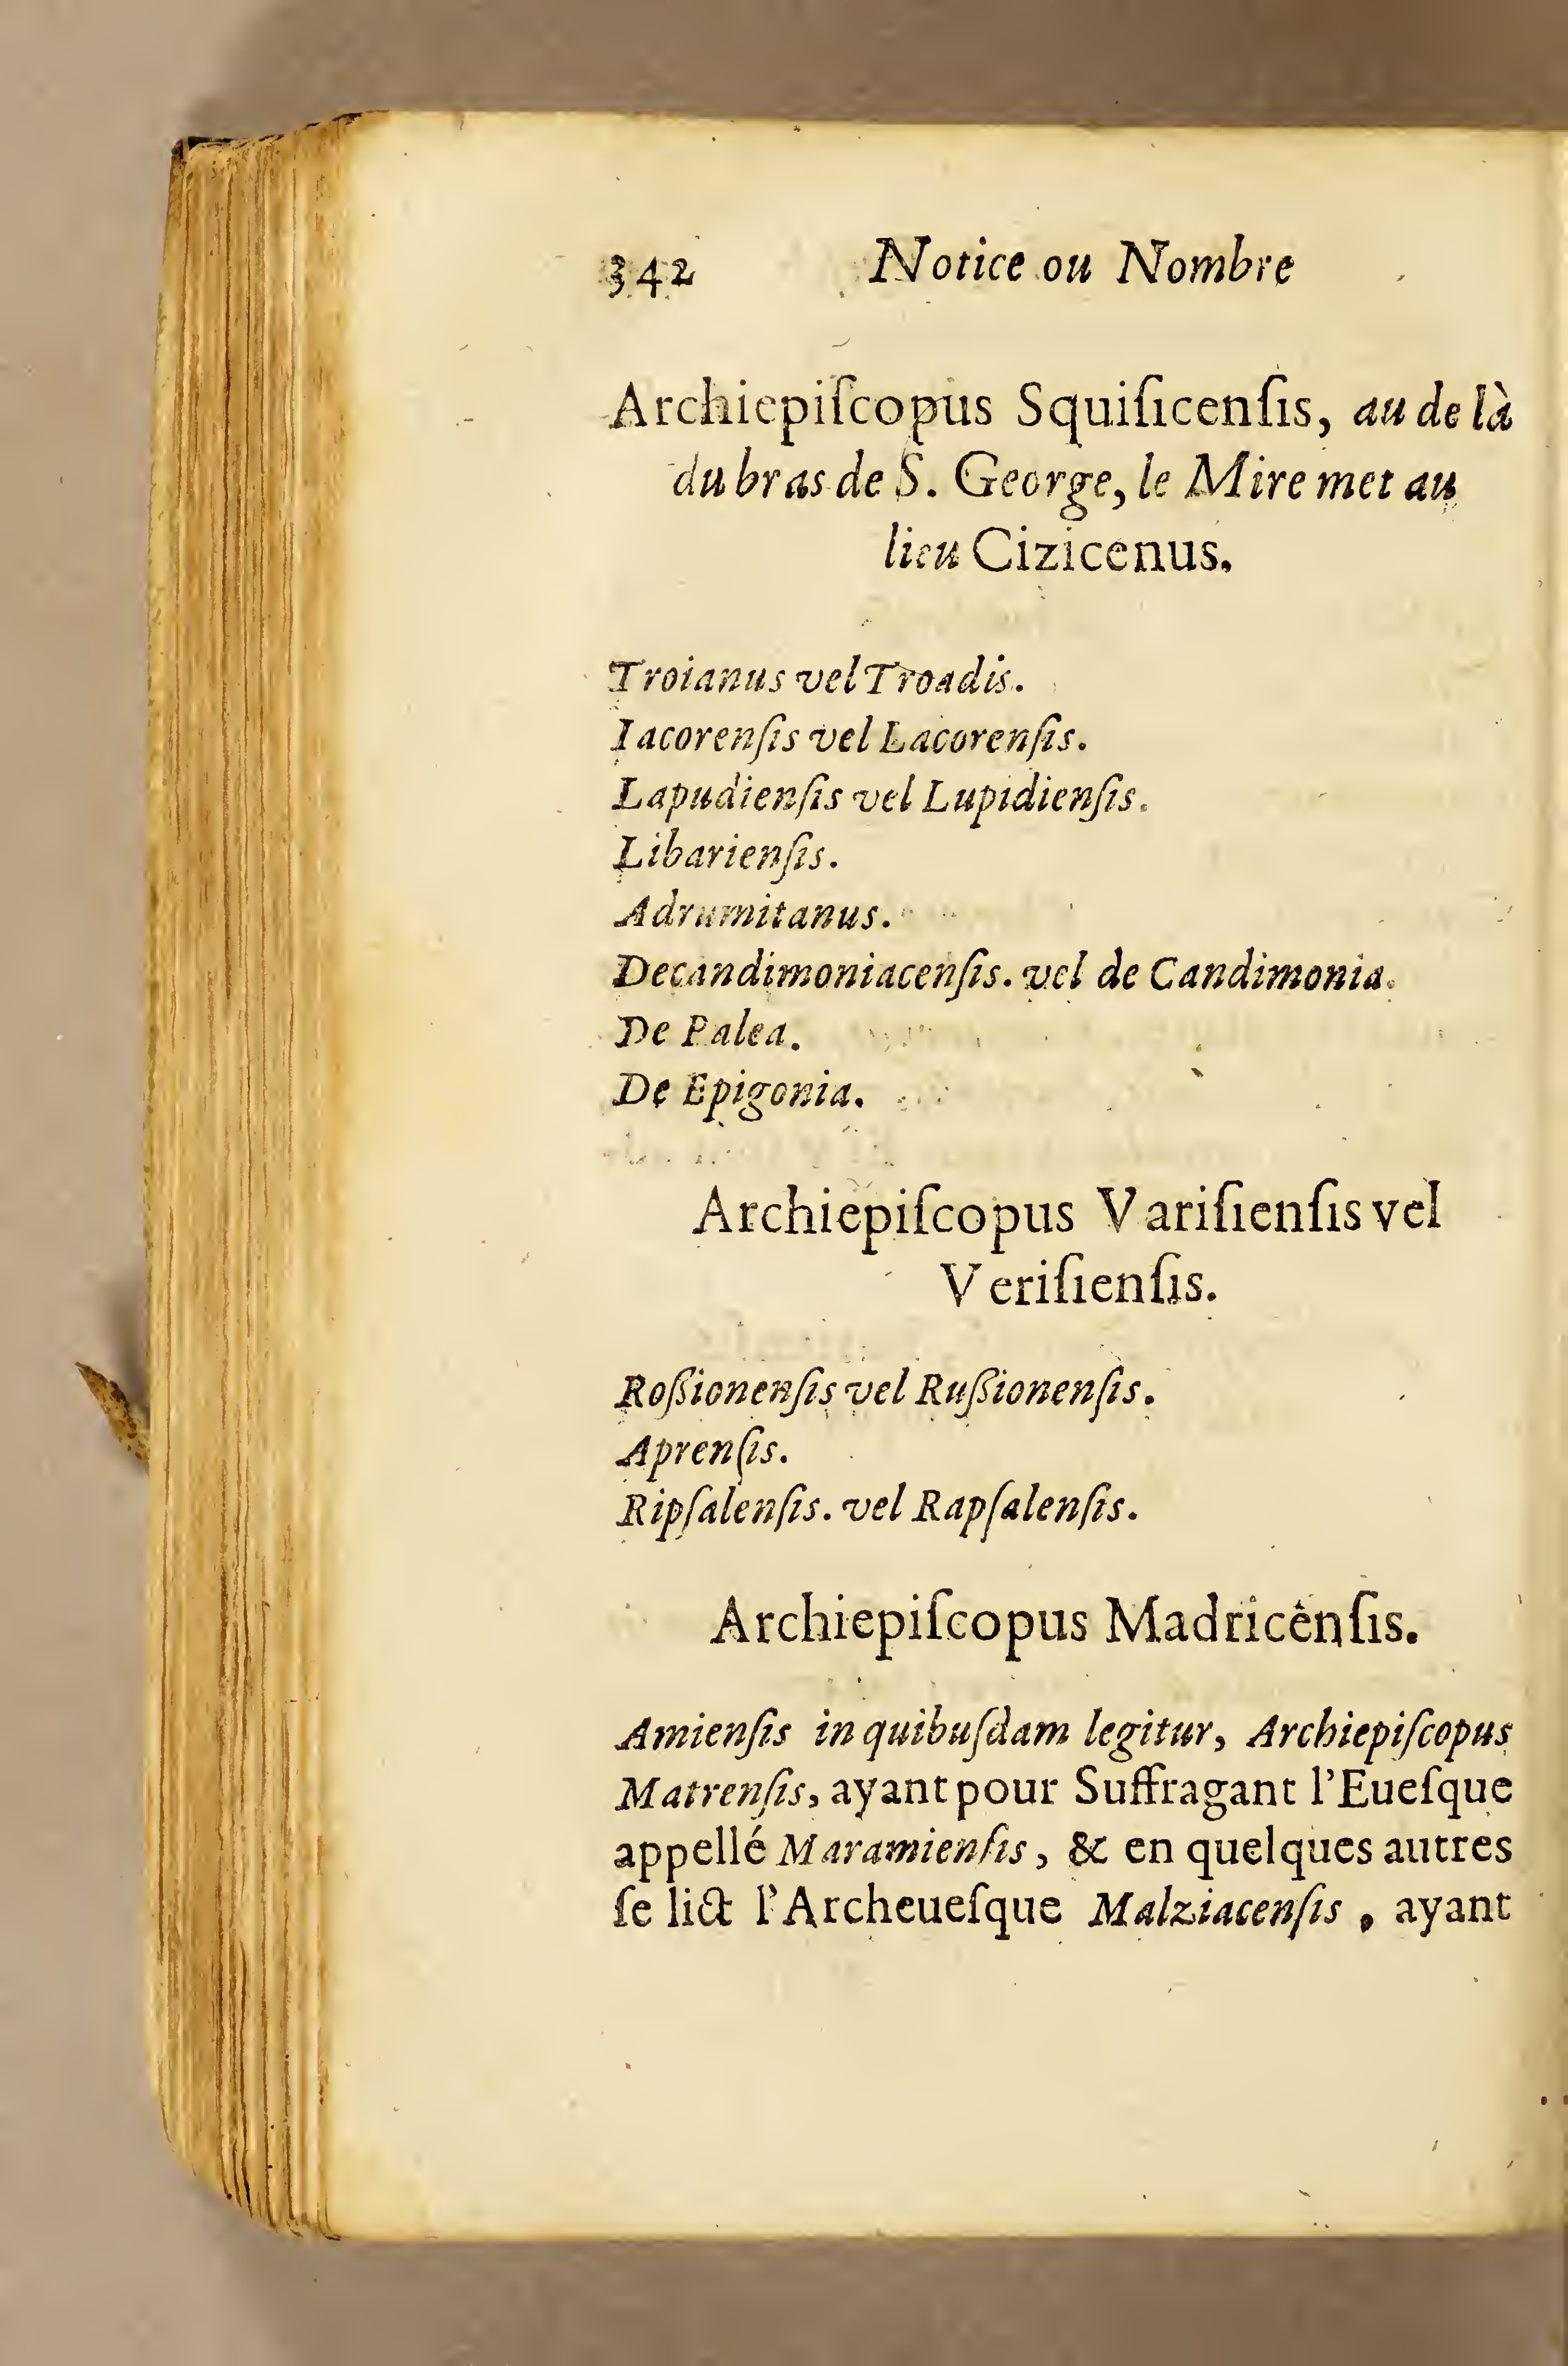 342 Notice ou Nombre
Archiepiſcopus Squiſicenſis, au de là
du bras de S. George, le Mire met au
lieu Cizicenus.
Troianus vel Troadis.
Iacorenſis vel Lacorenſis.
Lapudienſis vel Lupidienſis.
Libarienſis.
Adrumitanus.
Decandimoniacenſis. vel de Candimonia.
De Palea.
De Epigonia.
Archiepiſcopus Variſienſis vel
Veriſienſis.
Roßionenſis vel Rußionenſis.
Aprenſis.
Ripſalenſis. vel Rapſalenſis.
Archiepiſcopus Madricenſis.
Amienſis in quibuſdam legitur, Archiepiſcopus
Matrenſis, ayant pour Suffragant l'Eueſque
appellé Maramienſis, & en quelques autres
ſe lict l'Archeueſque Malziacenſis, ayant